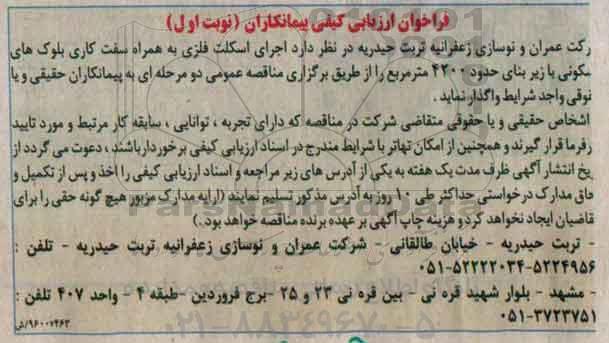 فراخوان ارزیابی کیفی پیمانکاران (نوبت اول)
رکت عمران و نوسازی زعفرانیه تربت حیدریه در نظر دارد اجرای اسکلت فلزی به همراه سفت کاری بلوک های
سکونی با زیر بنای حدود ۴۲۰۰ مترمربع را از طریق برگزاری مناقصه عمومی دو مرحله ای به پیمانکاران حقیقی و یا
نوقی واجد شرایط واگذار نماید .
اشخاص حقیقی و یا حقوقی متقاضی شرکت در مناقصه که دارای تجربه ، توانایی ، سابقه کار مرتبط و مورد تایید
رفرما قرار گیرند و همچنین از امکان تهاتر با شرایط مندرج در اسناد ارزیابی کیفی برخوردار باشند ، دعوت می گردد از
یخ انتشار آگهی ظرف مدت یک هفته به یکی از آدرس های زیر مراجعه و اسناد ارزیابی کیفی را اخذ و پس از تکمیل و
داق مدارک درخواستی حداکثر طی ۱۰ روز به آدرس مذکور تسلیم نمایند (ارایه مدارک مزبور هیچ گونه حقی را برای
قاضیان ایجاد نخواهد کرد و هزینه چاپ آگهی بر عهده برنده مناقصه خواهد بود .)
- تربت حیدریه - خیابان طالقانی - شرکت عمران و نوسازی زعفرانیه تربت حیدریه - تلفن :
۰۵۱-۵۲۲۲۲۰۳۴-۵۲۲۴۹۵۶
- مشهد - بلوار شهید قره نی - بین قره نی ۲۳ و ۲۵ -برج فروردین -طبقه ۴ - واحد ۴۰۷ تلفن :
۰۵۱-۳۷۲۳۷۵۱
۹۶۰۰۷۴۶۳/ش
۰۲۱-۸۸۳۴۹۶۷۰-۵